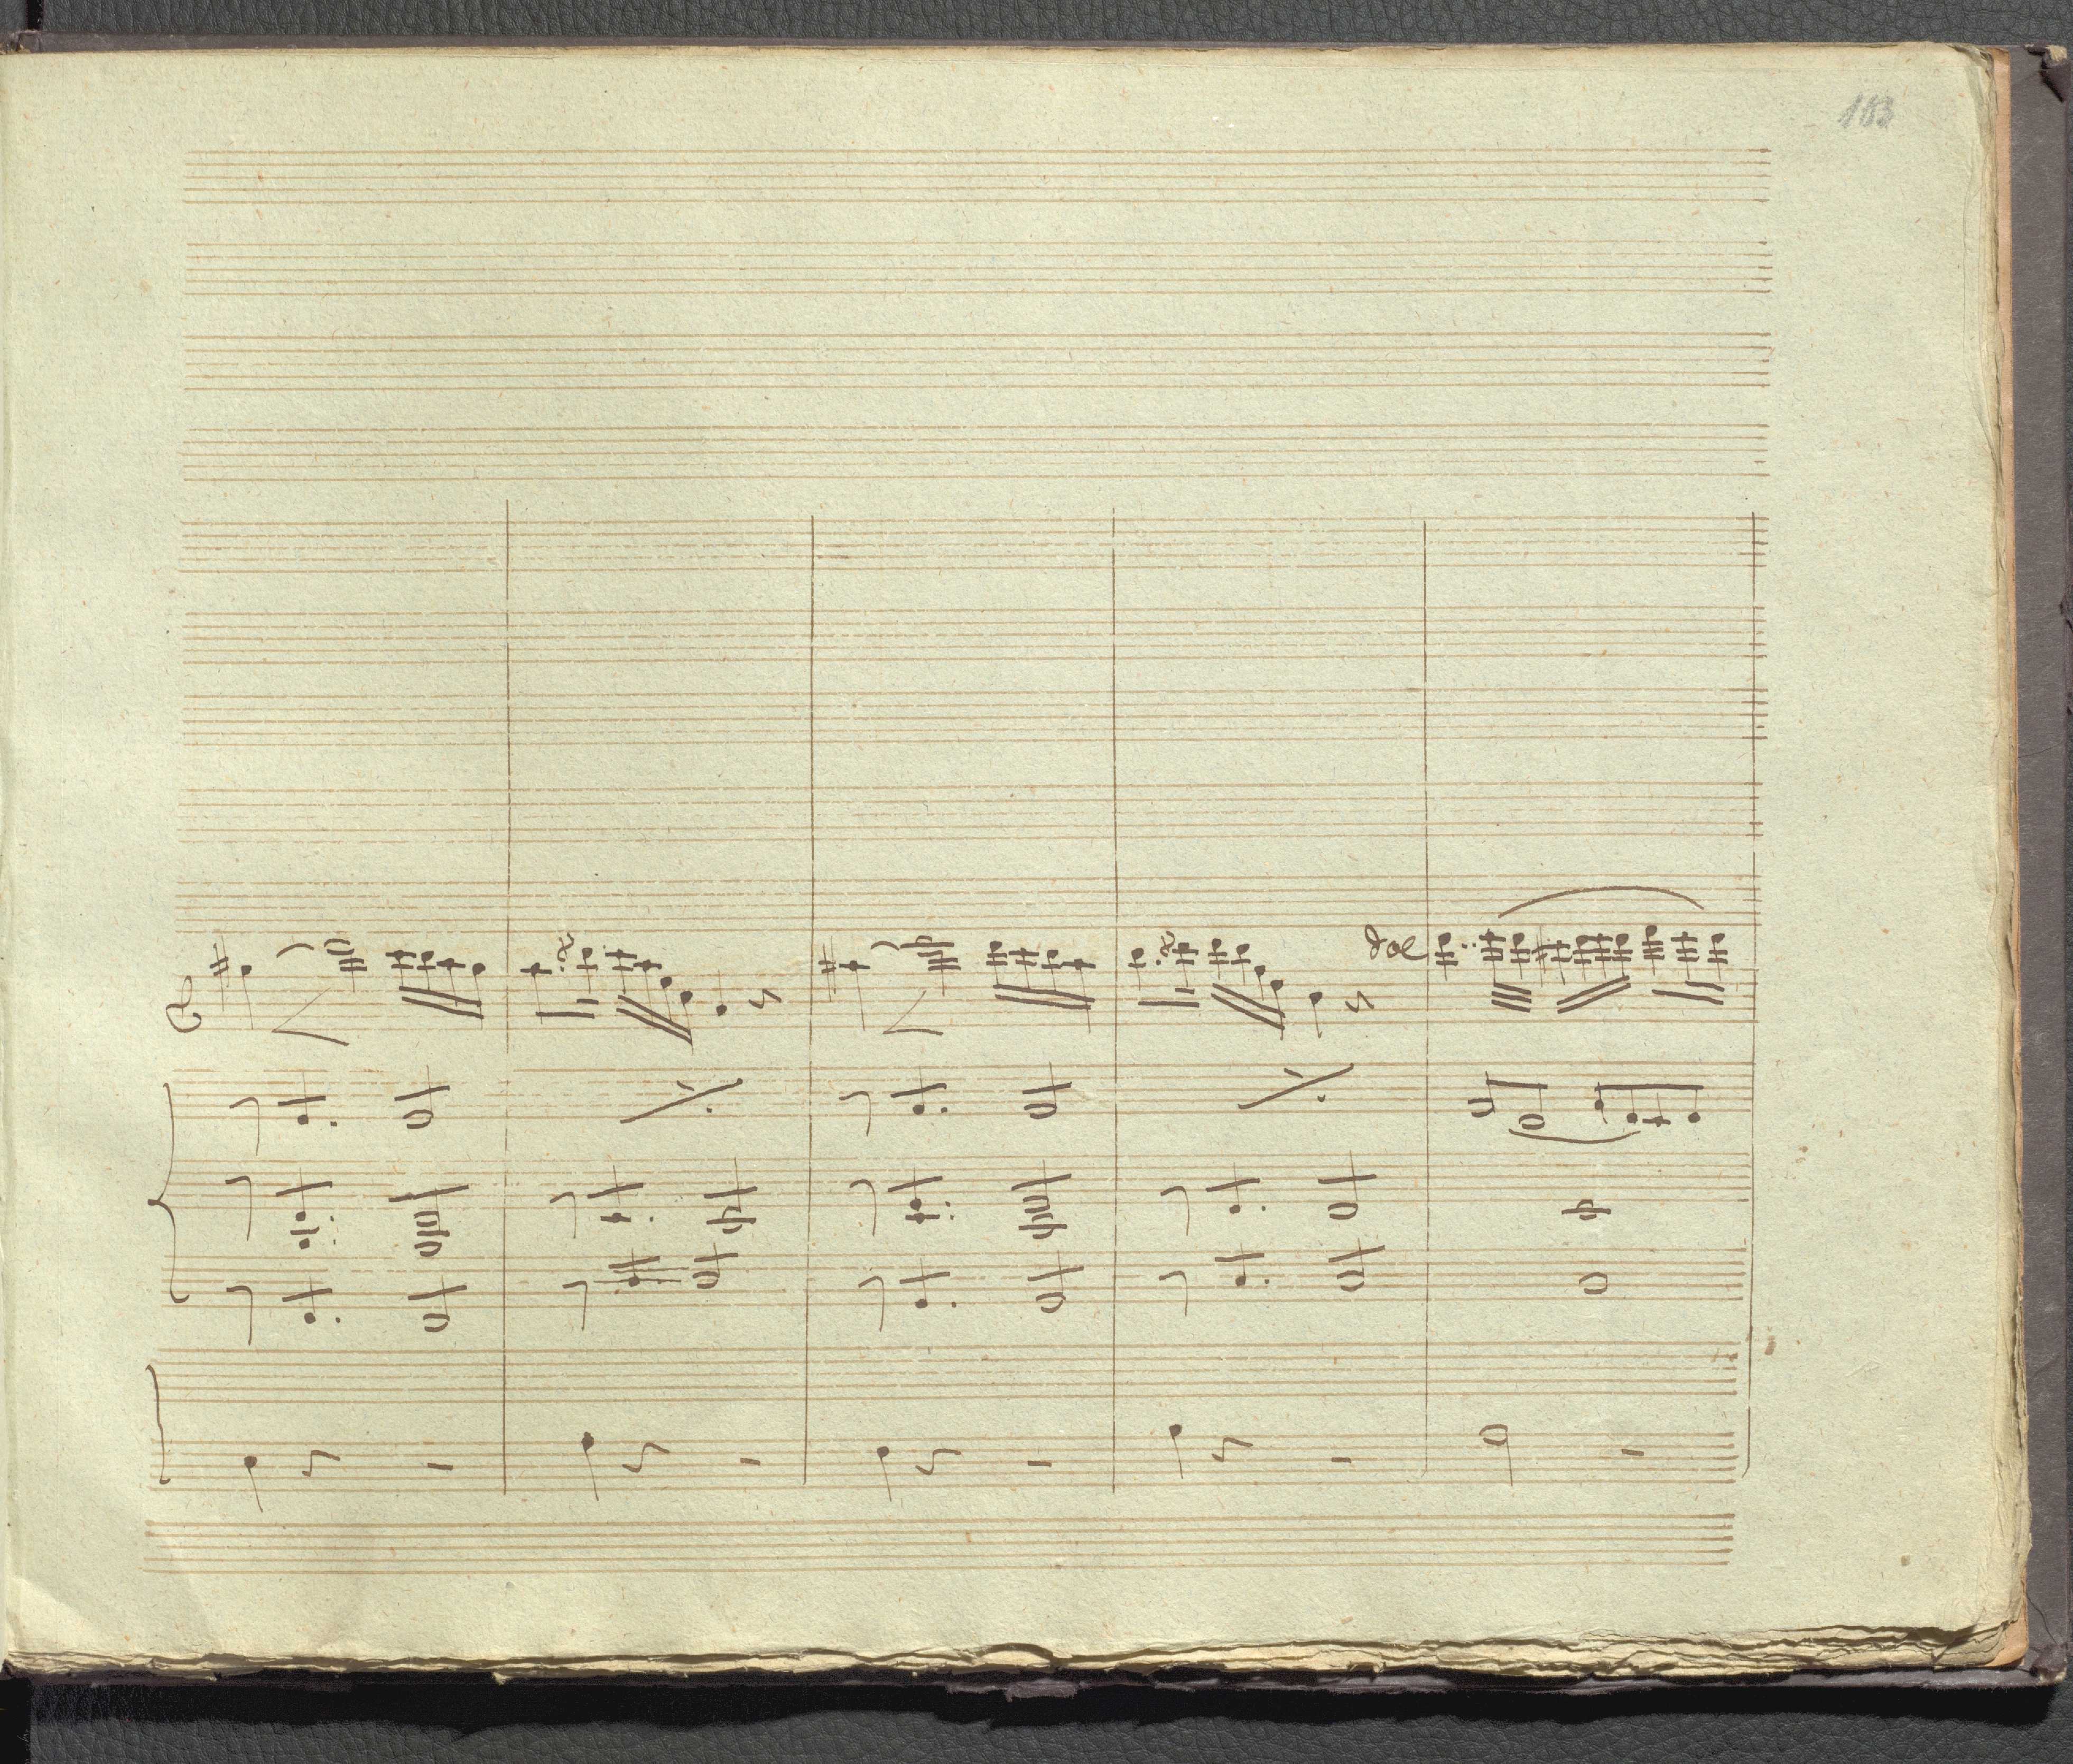 183
dol